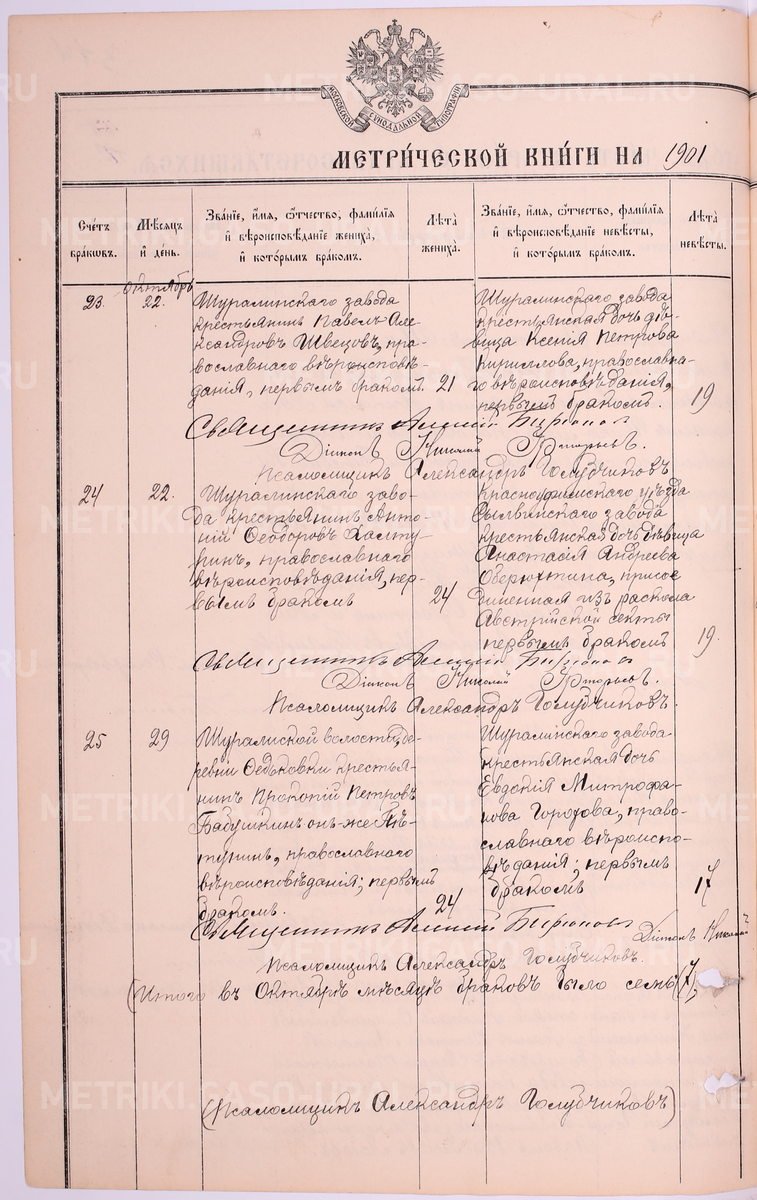 МОСКОВСКОЙ СѴНОДАЛЬНОЙ ТИПОГРАФІИ
МЕТРИЧЕСКОЙ КНИГИ НА 1901
Счетъ браковъ.
Мѣсяцъ и день.
Званіе, имя, отчество, фамилія и вѣроисповѣданіе жениха, и которымъ бракомъ.
Лѣта жениха.
Званіе, имя, отчество, фамилія и вѣроисповѣданіе невѣсты, и которымъ бракомъ.
Лѣта невѣсты.
Октябрь
23. 22.
Шуралинскаго завода
крестьянинъ Павелъ Але-
ксандровъ Швецовъ, пра-
вославнаго вѣроисповѣ-
данія, первымъ бракомъ.
21
Шуралинскаго завода
крестьянская дочь дѣ-
вица Ксенія Петрова
Кириллова, православна-
го вѣроисповѣданія,
первымъ бракомъ.
19
Священникъ
Діаконъ Николай
Псаломщикъ Александръ Голубчиковъ
24 22.
Шуралинскаго заво-
да крестьянинъ Анто-
ній Ѳеодоровъ Халту-
ринъ, православнаго
вѣроисповѣданія, пер-
вымъ бракомъ
24
Красноуфимскаго уѣзда
Сылвинскаго завода
крестьянская дочь дѣвица
Анастасія Андреева
Оберюхтина, присое
диненная изъ раскола
Австрійской секты
первымъ бракомъ
19.
Священникъ
Діаконъ Николай
Псаломщикъ Александръ Голубчиковъ.
25 29
Шуралиской волости, де-
ревни Ѳедьковки крестья-
нинъ Прокопій Петровъ
Бабушкинъ онъ-же
православнаго
вѣроисповѣданія; первымъ
бракомъ.
24
Шуралинскаго завода
крестьянская дочь
Евдокія Митрофа-
нова право-
славнаго вѣроиспо-
вѣданія; первымъ
бракомъ
17
Священникъ
Діаконъ Николай
Псаломщикъ Александръ Голубчиковъ.
(Итого въ Октябрѣ мѣсяцѣ браковъ было семь (7).
(Псаломщикъ Александръ Голубчиковъ)
METRIKI.GASO-URAL.RU